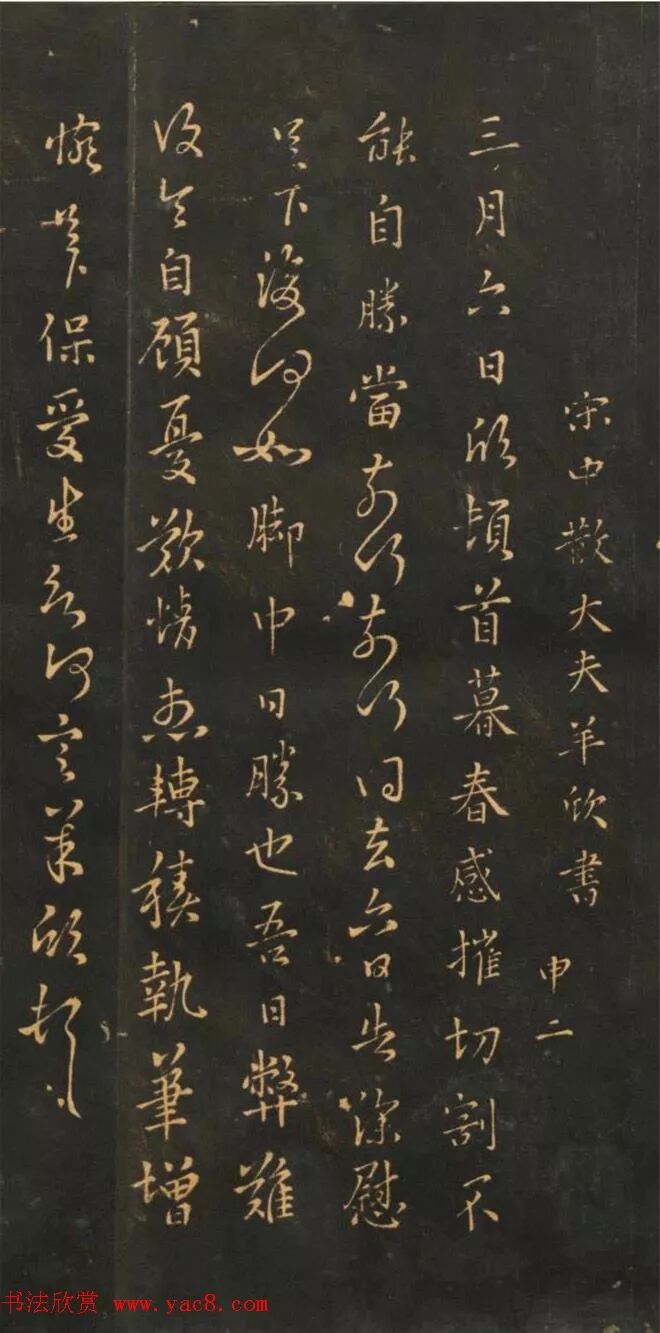 宋中散大夫羊欣書 申二
三月六日欣頓首暮春感摧切割不
能自勝當奈何奈何得去六日告深慰
足下復何如脚中日勝也吾日弊難
自顧憂歎情轉積執筆增
足下保何言羊欣頓首
书法欣赏 www.yac8.com